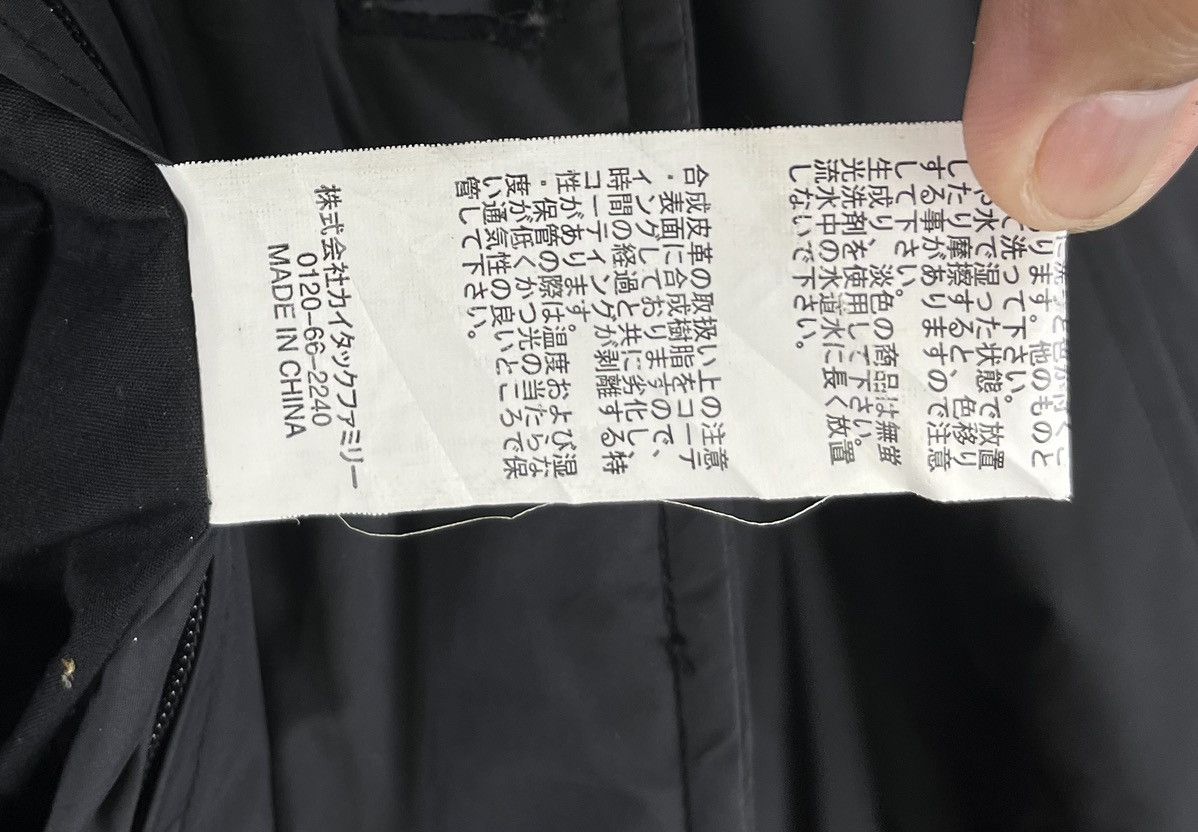 ります。他のものと
洗って下さい。
や水で湿った状態で放置
したり摩擦すると、色移り
する事がありますので注意
して下さい。
生成り、淡色の商品は無蛍
光洗剤を使用して下さい。
流水中の水道水に長く放置
しないで下さい。
合成皮革の取扱い上の注意
・表面に合成樹脂をコーテ
ィングしておりますので、
時間の経過と共に劣化し、
コーティングが剥離する特
性があります。
・保管の際は温度および湿
度が低くかつ光の当たらな
い通気性の良いところで保
管して下さい。
株式会社カイタックファミリー
0120-66-2240
MADE IN CHINA